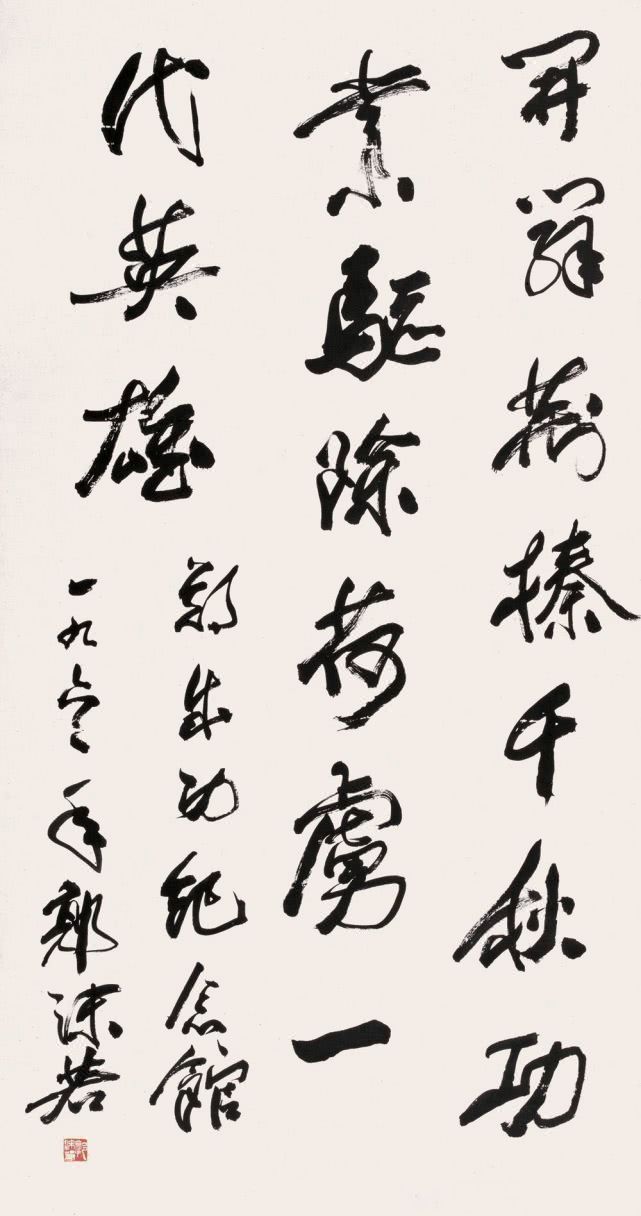 開闢荆榛千秋功
業驅除荷虜一
代英雄
鄭成功紀念館
一九六二年郭沫若